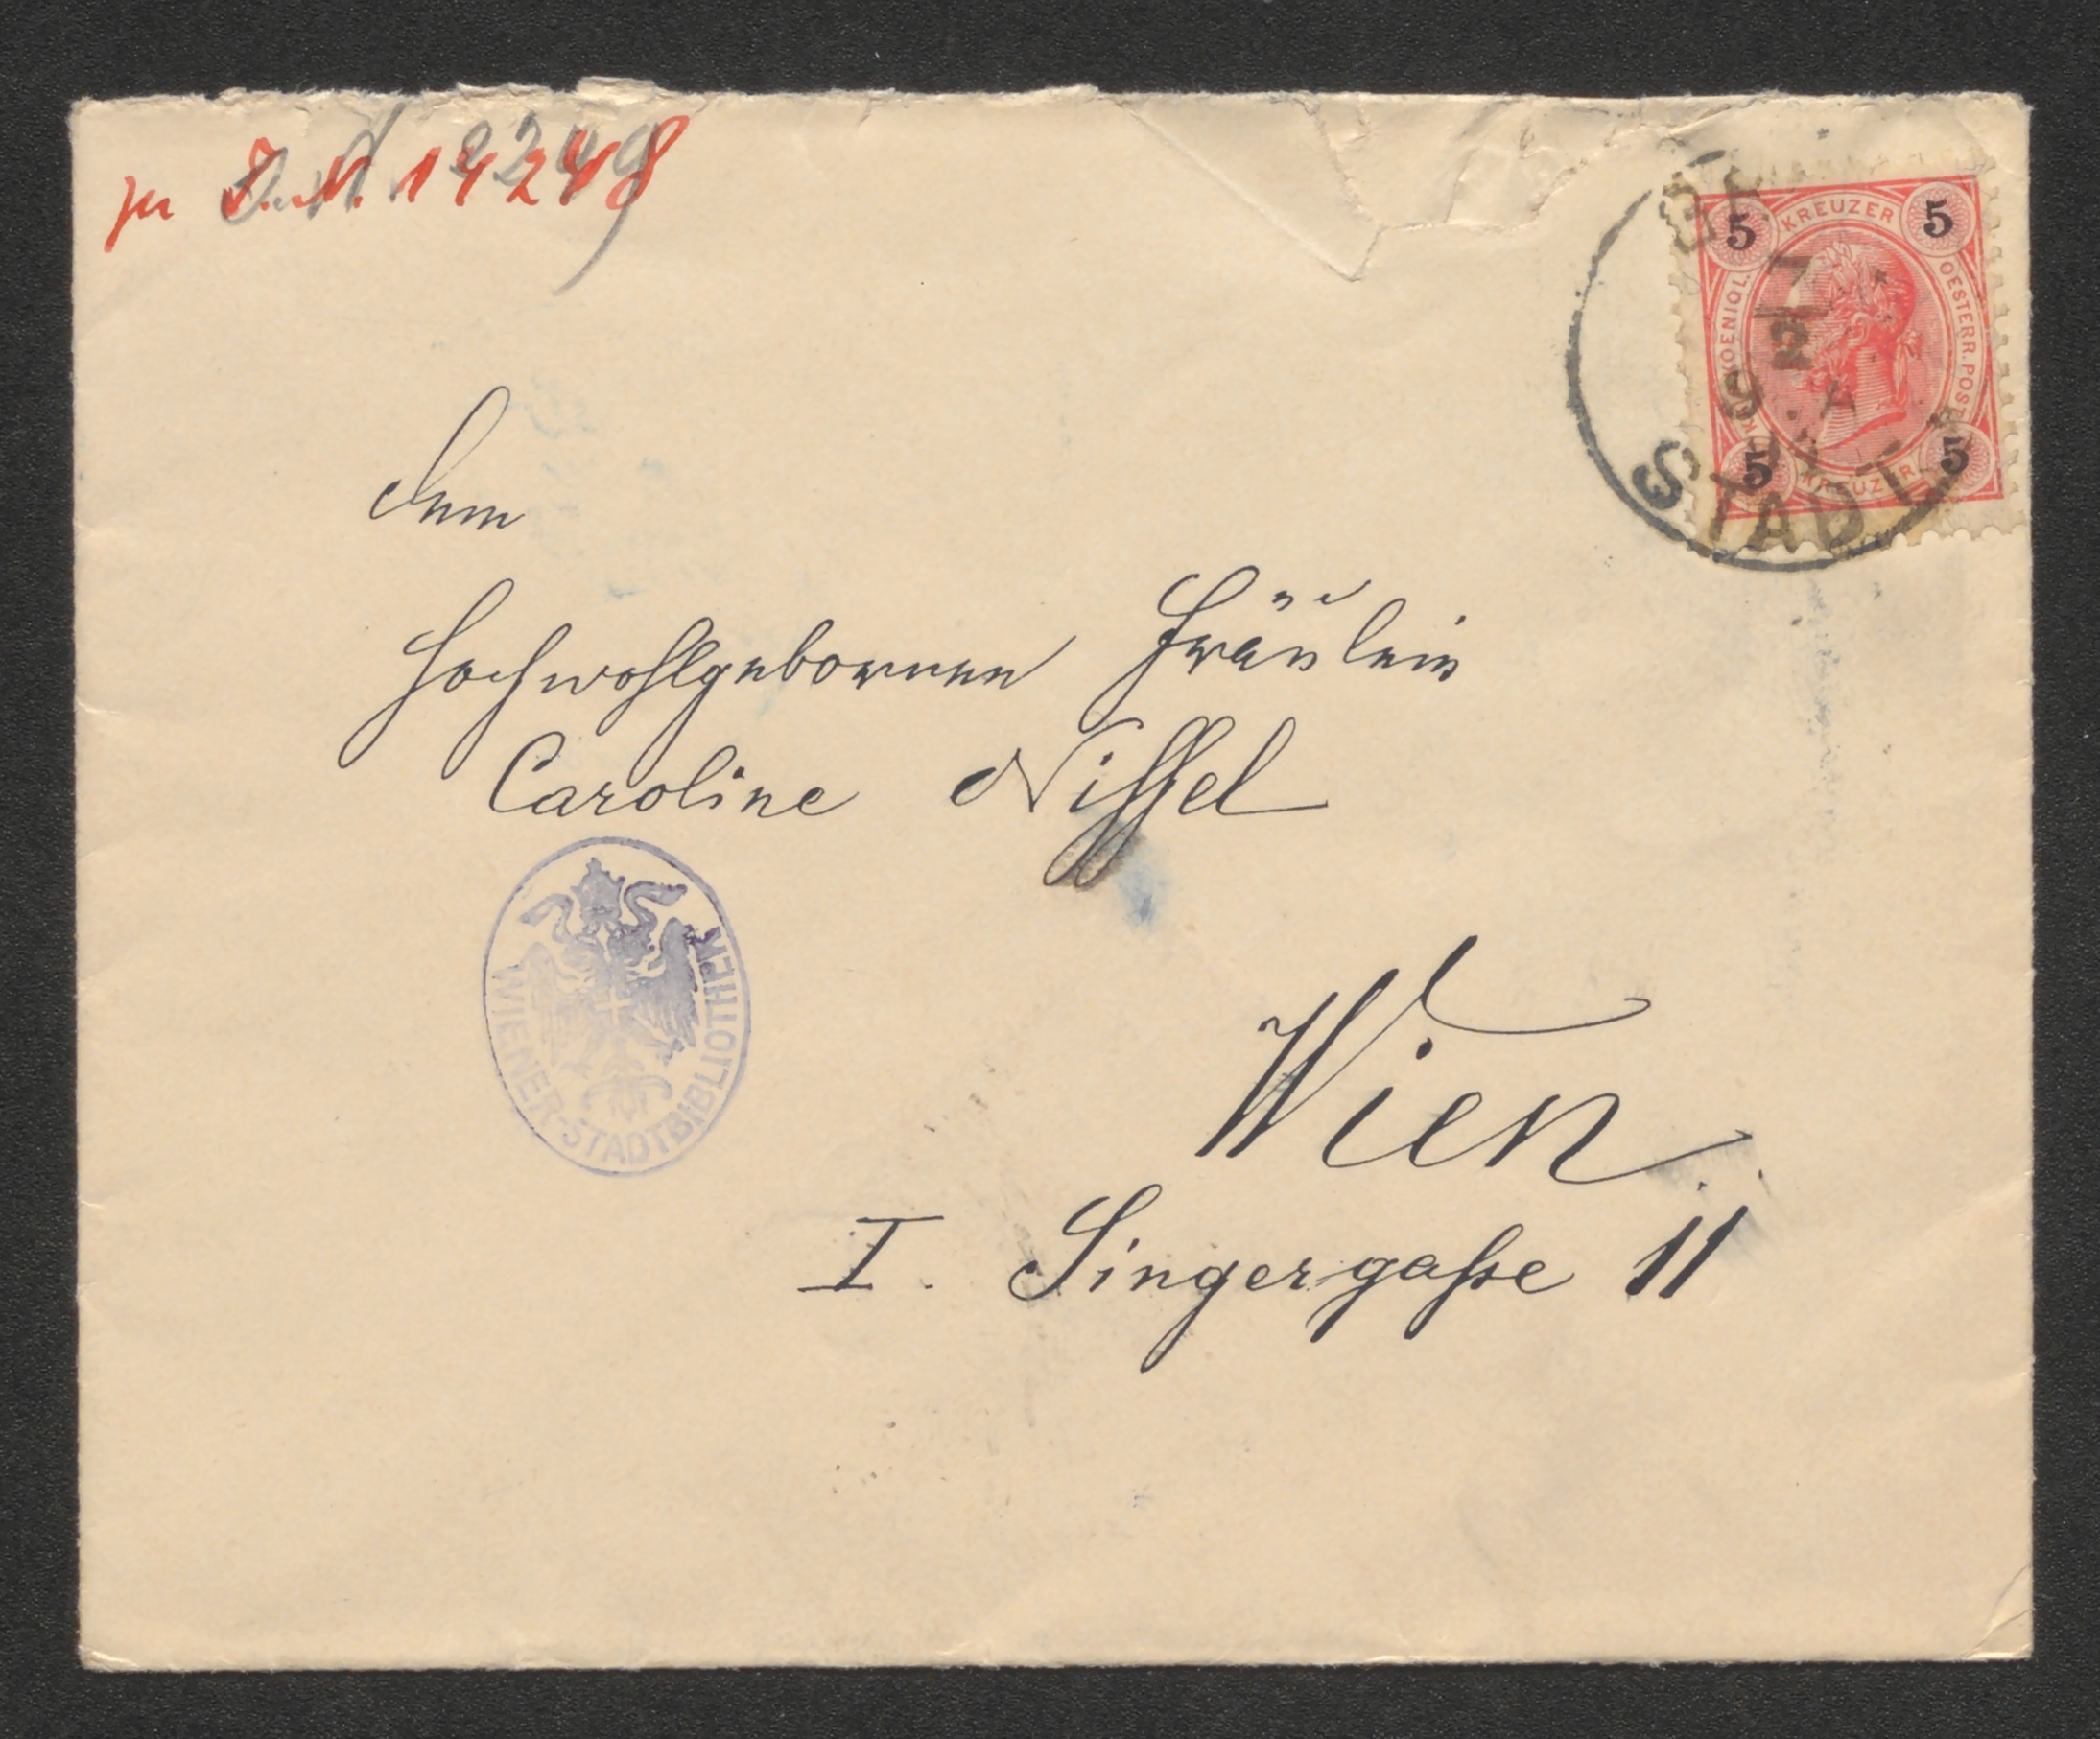 zu J.N. 14248
5 KREUZER 5
KOENIGL. OESTERR. POST
5 KREUZER 5
STADT
Dem
Hochwohlgebornen Fräulein
Caroline Niſſel
Wien
I. Singergaſse 11
WIENER-STADTBIBLIOTHEK